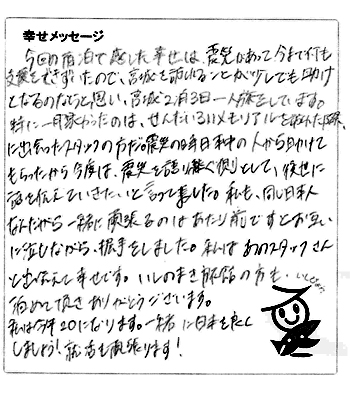 幸せメッセージ
今回の宿泊で感じた幸せは、震災があって今まで何も
支援をできずいたので、宮城を訪れることが少しでも助け
となるのならと思い、宮城2泊3日一人旅をしています。
特に一日目良かったのは、せんだい3.11メモリアルを訪れた際、
に出会ったスタッフの方だ。震災の時日本中の人から助けて
もらったから今度は、震災を語り継ぐ側として、後世に
話を伝えていきたい、と言って喜した。私も、同じ日本人
なんだから一緒に頑張るのはあたり前ですとお互い
に泣しながら、握手をしました。私は、あのスタッフさん
と出会えて幸せです。いしのまき の方も、
泊めて頂きありがとうございます。
私は今年20になります。一緒に日本を良く
しましょう！就活も頑張ります！